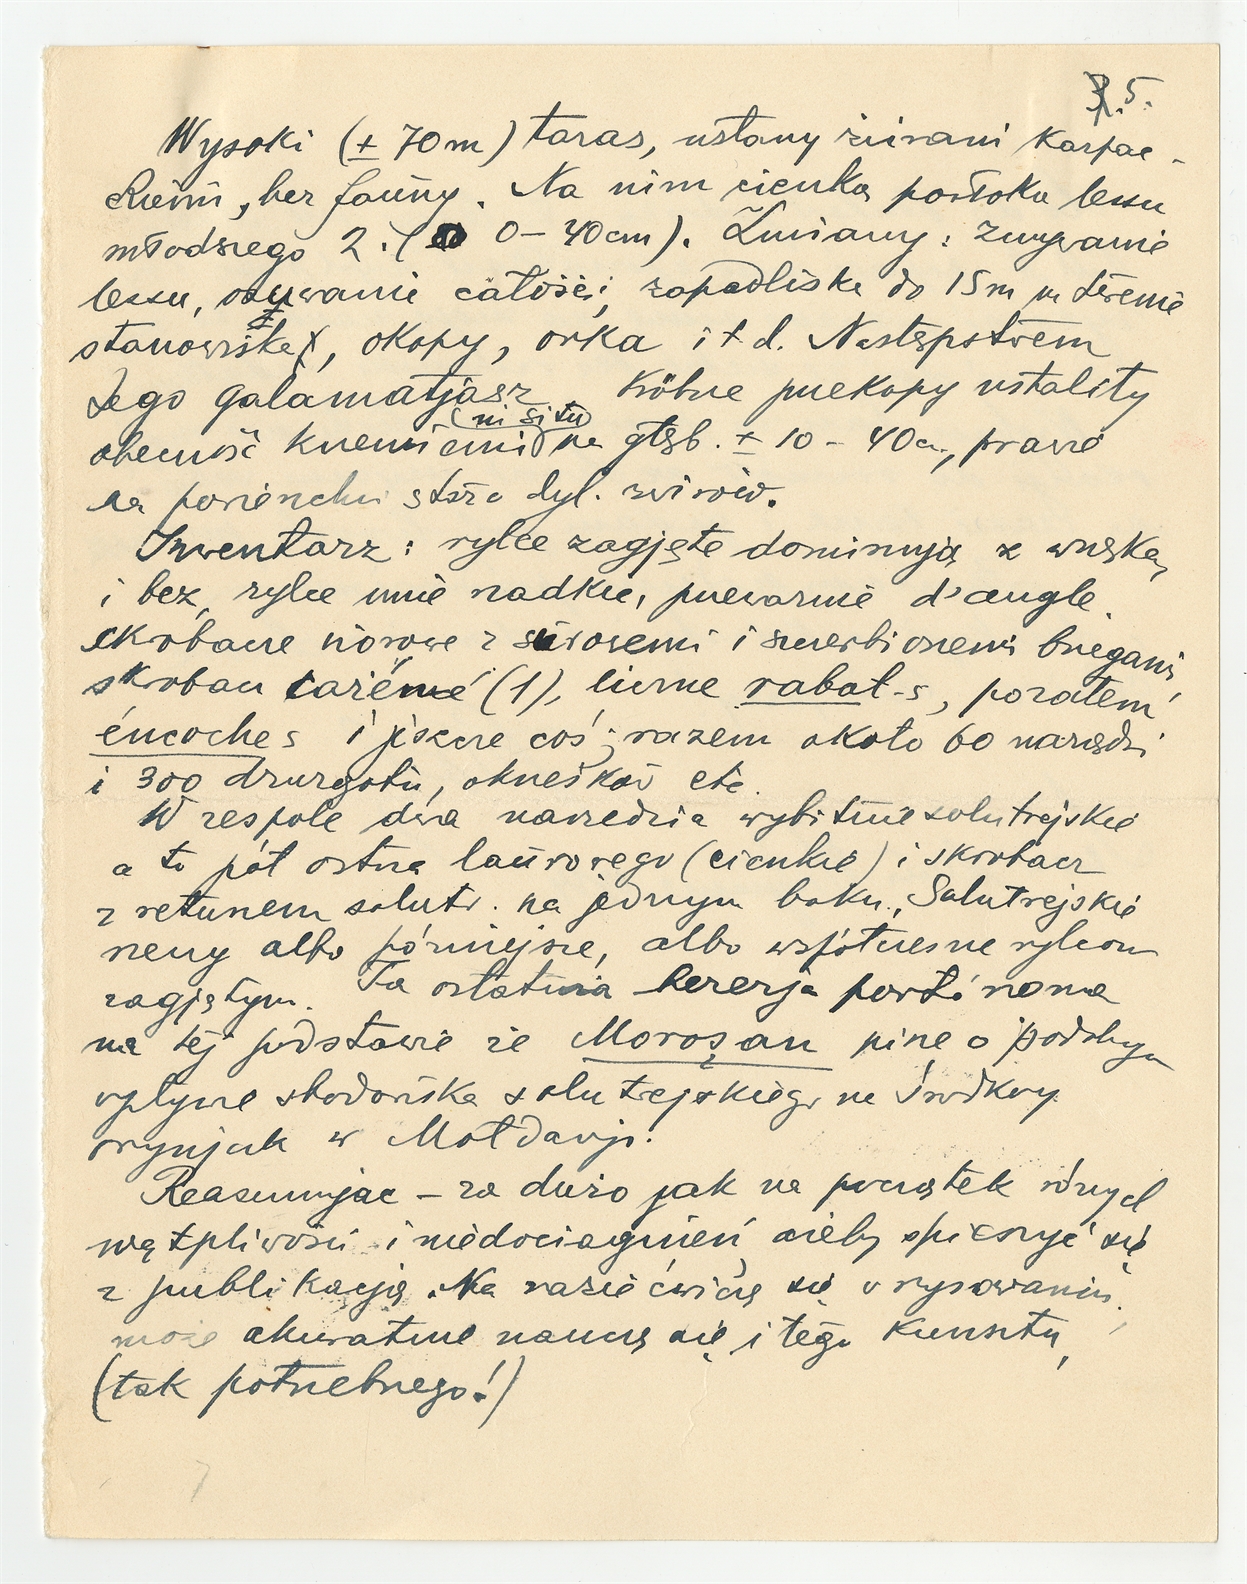 5.
Wysoki (± 70 m) taras, usłany żwirami karpac-
kiemi, bez fauny. Na nim cienka powłoka lessu
młodszego 2. ( 0 – 40 cm). Zmiany: zmywanie
lessu, osuwanie całości, zapadliska do 15 m na terenie
stanowiska, okopy, orka i t. d. Następstwem
tego galamatjasz. Próbne przekopy ustality
obecność krzemieni (in situ) na głęb. ± 10 – 40 cm, prawie
na powierzchni stożka dyl. żwirów.
Inwentarz: rylce zagięte dominują z wnęką
i bez, rylce inne rzadkie, przeważnie d'angle,
skrobacze z i szczerbionemi brzegami,
skrobacz caréné (1), liczne rabot-s, pozatem
encoches i jeszcze coś; razem około 60 narzędzi
i 300 druzgotu, okrzesków etc.
W zespole dwa narzędzia wybitnie solutrejskie
a to pół ostrza laurowego (cienkie) i skrobacz
z retuszem solutr. na jednym boku. Solutrejskie
rzeczy albo późniejsze, albo współczesne rylcom
zagiętym. Ta ostatnia herezja powtórzona
na tej podstawie że Moroşan pisze o podobnym
wpływie środowiska solutrejskiego na środkowy
oryniak w Mołdawji.
Reasumując – za dużo jak na początek różnych
wątpliwości i niedociągnień, żeby spieszyć się
z publikacją. Na razie ćwiczę się w rysowaniu,
może akuratnie nauczę się i tego kunsztu,
(tak potrzebnego!)